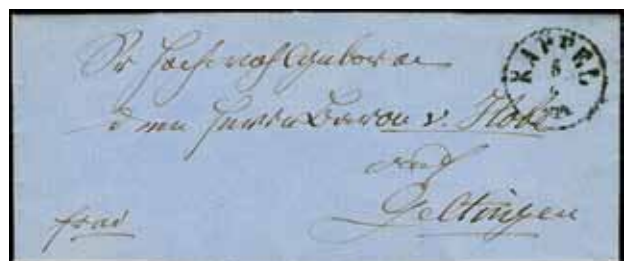 Sr Hochwohlgeboren
dem Herrn Baron v. Hobe
auf
Geltingen
frei
KAPPEL
5
2